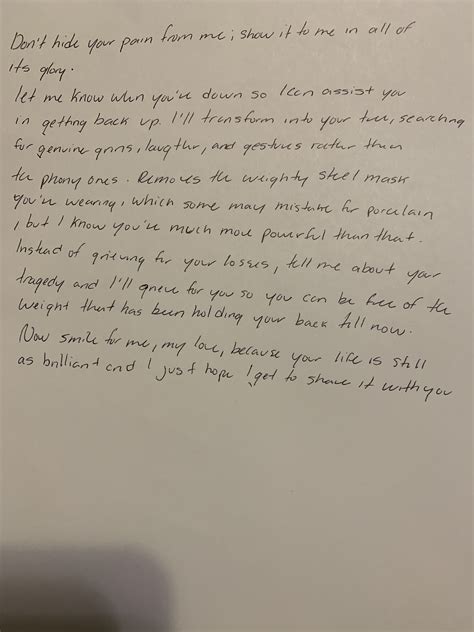 Don't hide your pain from me; show it to me in all of
its glory.
let me know when you're down so I can assist you
in getting back up. I'll transform into your tree, searching
for genuine grins, laughter, and gestures rather than
the phony ones. Removes the weighty steel mask
you're wearing, which some may mistake for porcelain
, but I know you're much more powerful than that.
Instead of grieving for your losses, tell me about your
tragedy and I'll grieve for you so you can be free of the
weight that has been holding your back till now.
Now smile for me, my love, because your life is still
as brilliant and I just hope I get to share it with you